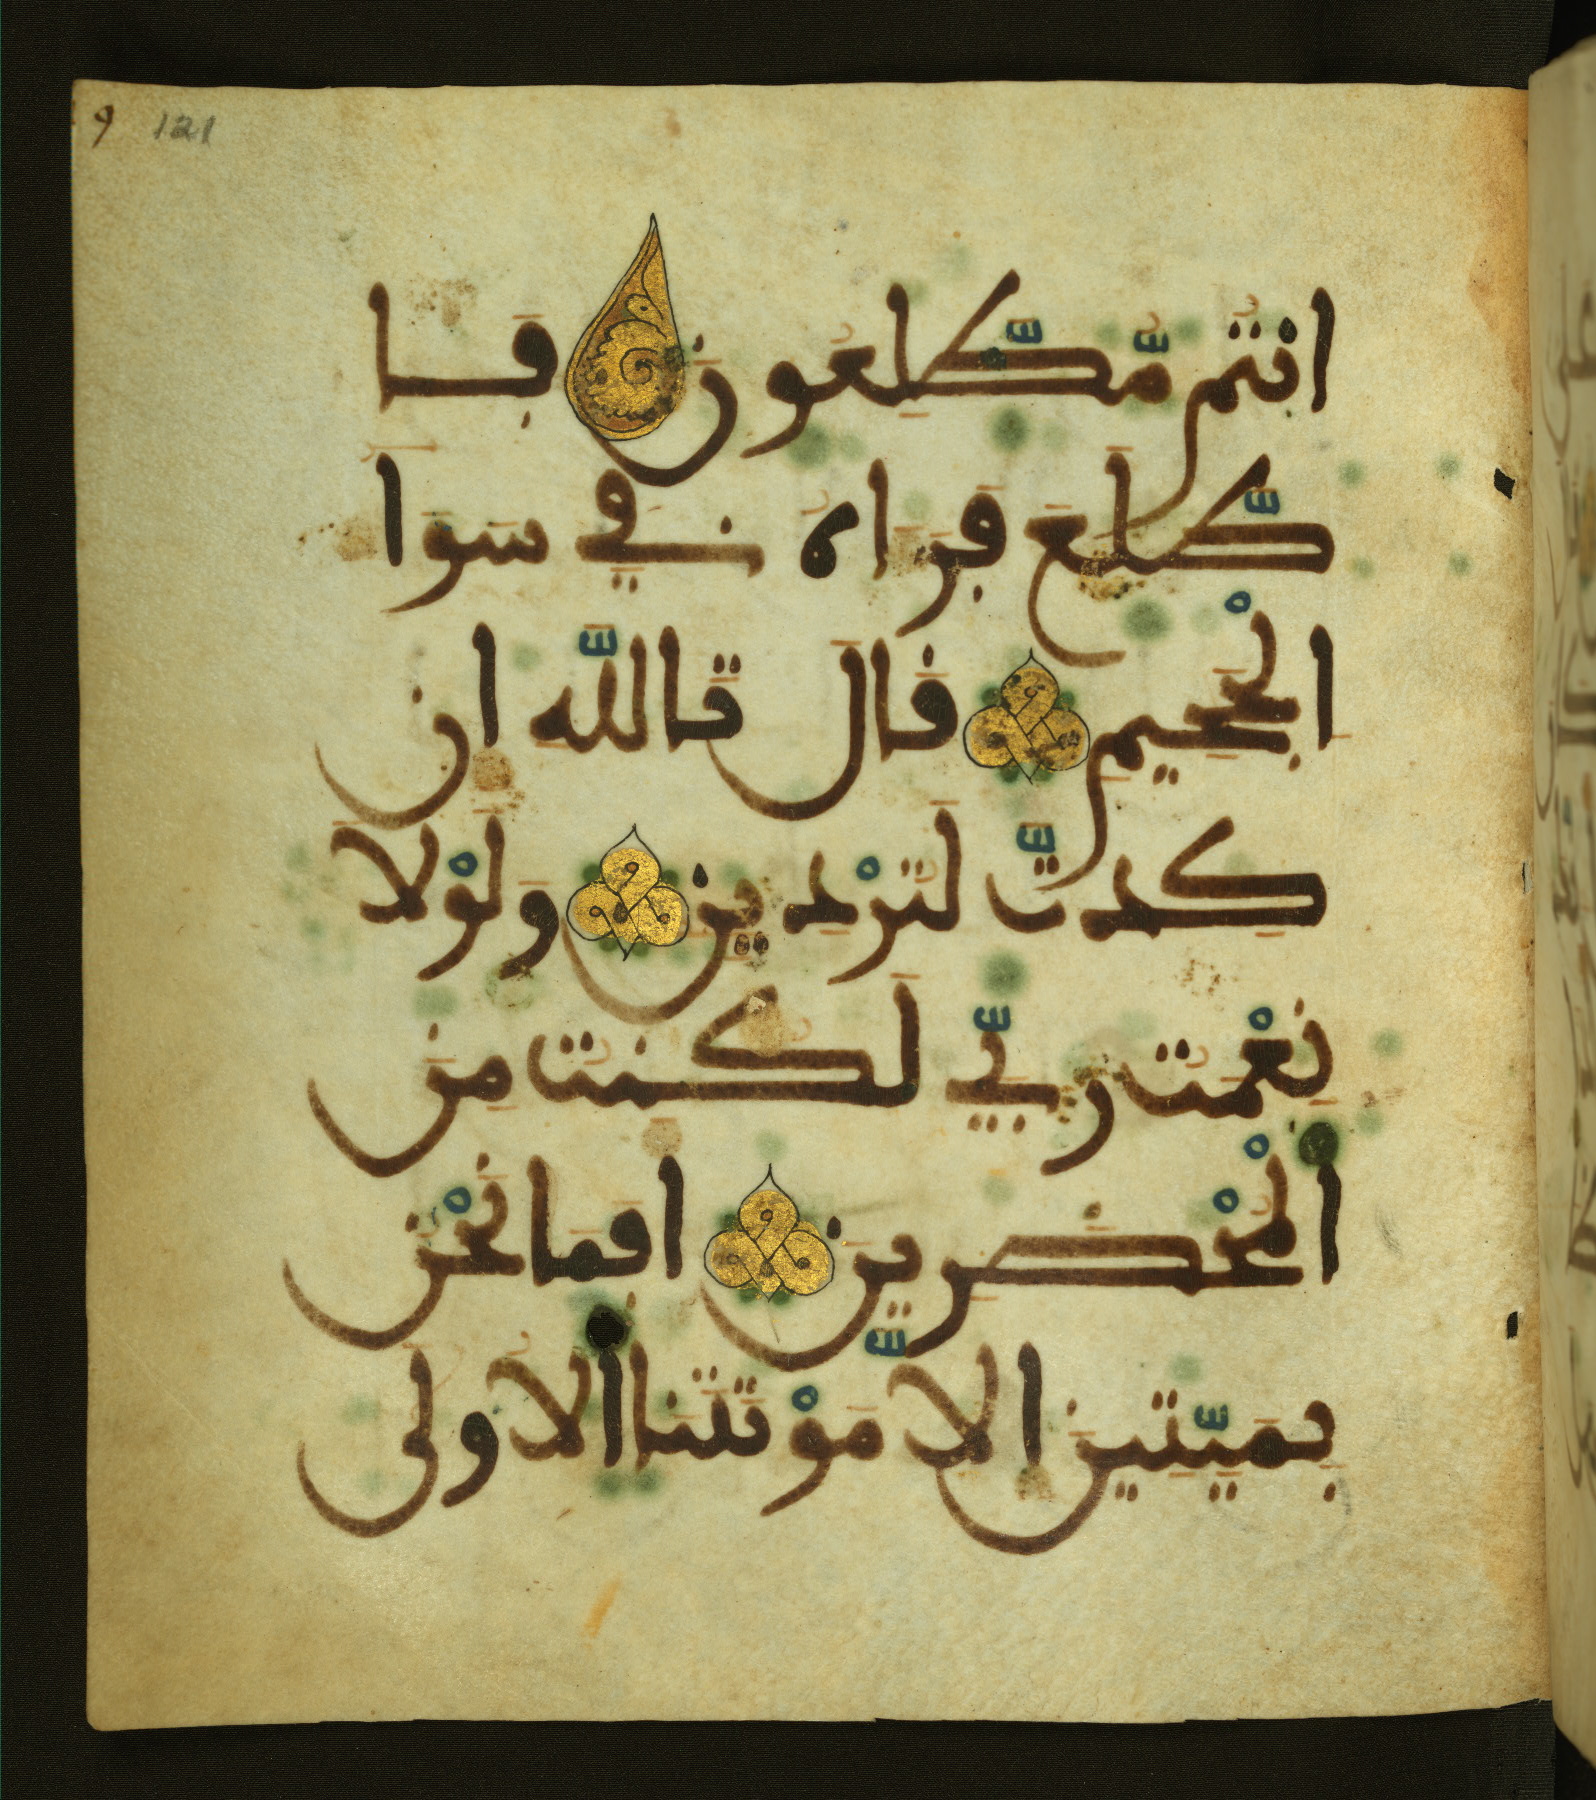 9 121
انتم مّطّلعون فا
طّلع فراه في سوا
الْجحيم قال تاللّه ان
كدتّ لتزْدين ولوْلا
نعْمت ربّي لكنت من
الْمحْضرين افما نحْن
بميّتين الّا موْتتنا الاولى